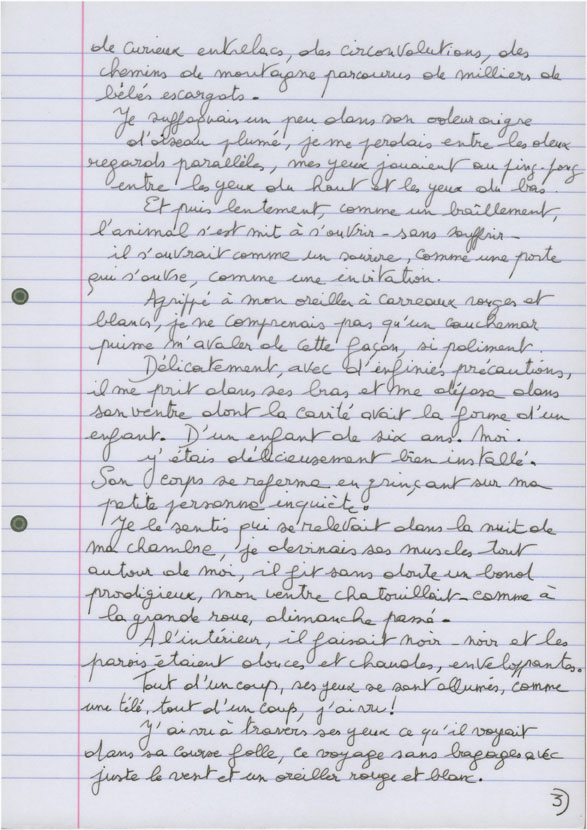 de curieux entrelacs, des circonvolutions, des
chemins de montagne parcourus de milliers de
bébés escargots.
Je suffoquais un peu dans son odeur aigre
d'oiseau plumé, je me perdais entre les deux
regards parallèles, mes yeux jouaient au ping-pong
entre les yeux du haut et les yeux du bas.
Et puis lentement, comme un baîllement,
l'animal s'est mit à s'ouvrir - sans souffrir -
il s'ouvrait comme un sourire, comme une porte
qui s'ouvre, comme une invitation.
Agrippé à mon oreiller à carreaux rouges et
blancs, je ne comprenais pas qu'un cauchemar
puisse m'avaler de cette façon, si poliment.
Délicatement, avec d'infinies précautions,
il me prit dans ses bras et me déposa dans
son ventre dont la cavité avait la forme d'un
enfant. D'un enfant de six ans. Moi.
J'étais délicieusement bien installé.
Son corps se referma en grinçant sur ma
petite personne inquiète.
Je le sentis qui se relevait dans la nuit de
ma chambre, je devinais ses muscles tout
autour de moi, il fit sans doute un bond
prodigieux, mon ventre chatouillait - comme à
la grande roue, dimanche passé.
A l'intérieur, il faisait noir - noir et les
parois étaient douces et chaudes, enveloppantes.
Tout d'un coup, ses yeux se sont allumés, comme
une télé, tout d'un coup, j'ai vu!
J'ai vu à travers ses yeux ce qu'il voyait
dans sa course folle, ce voyage sans bagages avec
juste le vent et un oreiller rouge et blanc.
3)